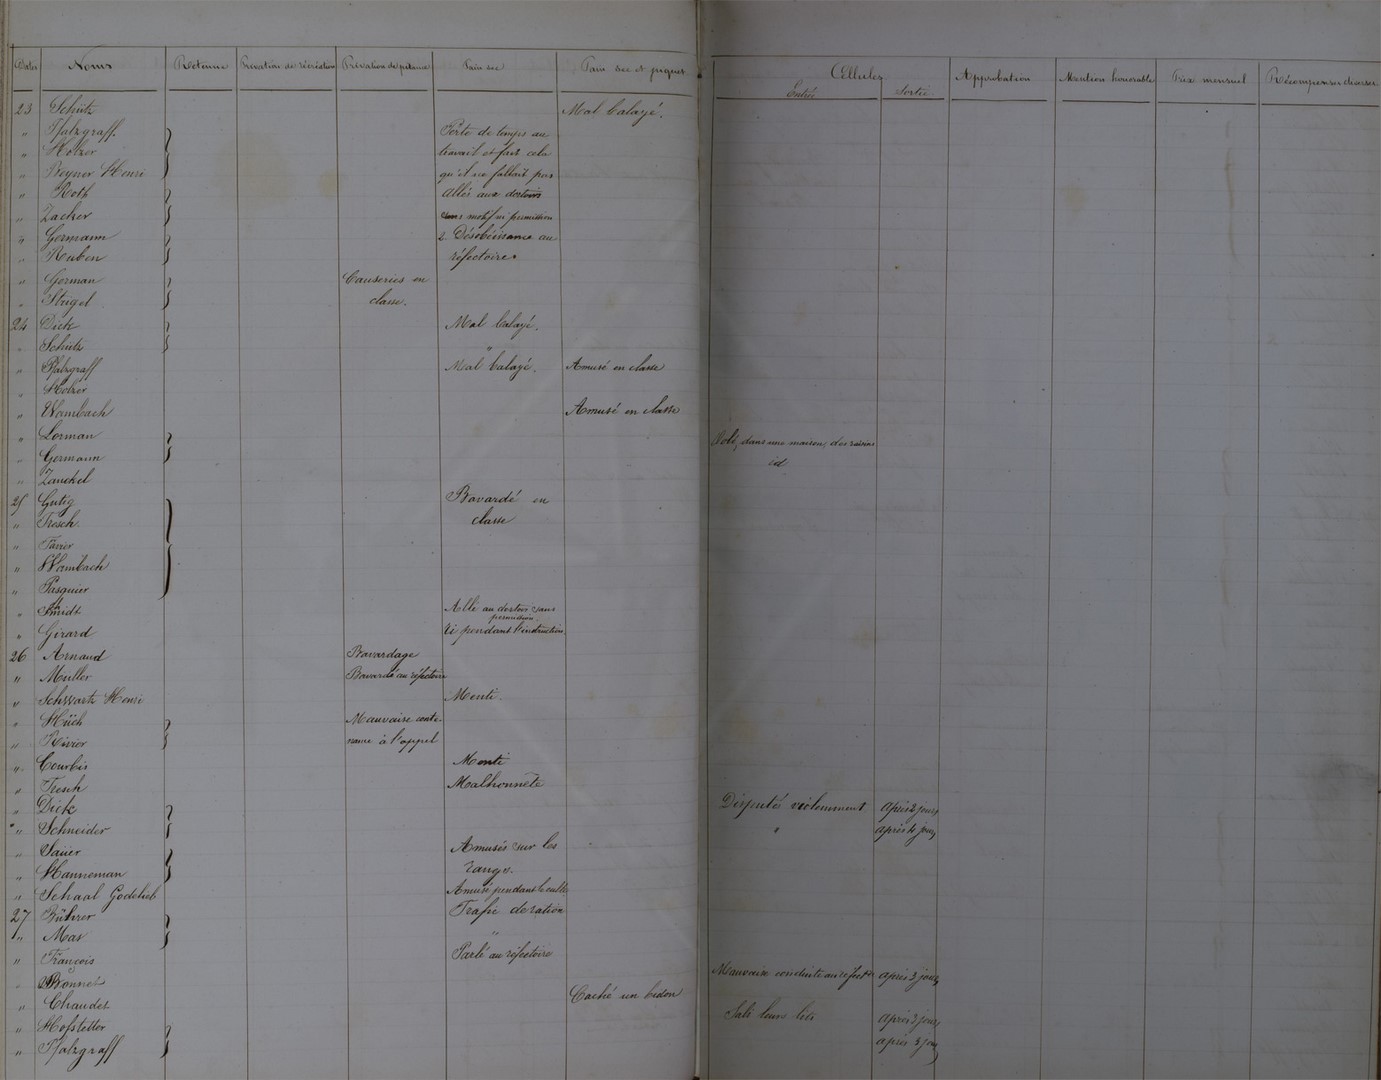 Dates Noms Retenue Privation de récréation Privation de pitance Pain sec Pain sec et piquet Cellules Approbation Mention honorable Prix mensuel Récompenses diverses
Entrée Sortie
23 Schütz Mal balayé.
" Pfalzgraff. Perte de temps au
" Holzer travail et fait cela
" Beyner Henri qu'il ne fallait pas
" Roth Allés aux dortoirs
" Zacher sans motif ni permission
" Germann 2. Désobéissance au
" Ruben réfectoire
" German Causeries en
" Strigel classe.
24 Dick Mal balayé.
" Schütz "
" Pfalzgraff Mal balayé. Amusé en classe
" Holzer
" Wambach Amusé en classe
" Lorman Volé, dans une maison, des raisins
" Germann id
" Zanckel
25 Gutig Bavardé en
" Fresch. classe
" Favier
" Wambach
" Pasquier
" Smidt Allé au dortoir sans
permission
" Girard Ri pendant l'instruction
26 Arnaud Bavardage
" Muller Bavardé au réfectoire
" Schwartz Henri Menti.
" Hüch Mauvaise conte-
" Rivier nance à l'appel
" Courbis Menti
" Fresch Malhonnête
" Dick Disputés violemment après 2 jours
" Schneider " après 4 jours
" Sauer Amusés sur les
" Hanneman rangs.
" Schaal Godelieb Amusé pendant le culte
27 Bührer Trafic de ration
" Mas "
" François Parlé au réfectoire
" Bonnet Mauvaise conduite au réfect. après 3 jours
" Chaudet Caché un bidon
" Hofstetter Sali leurs lits après 3 jours
" Pfalzgraff après 3 jours